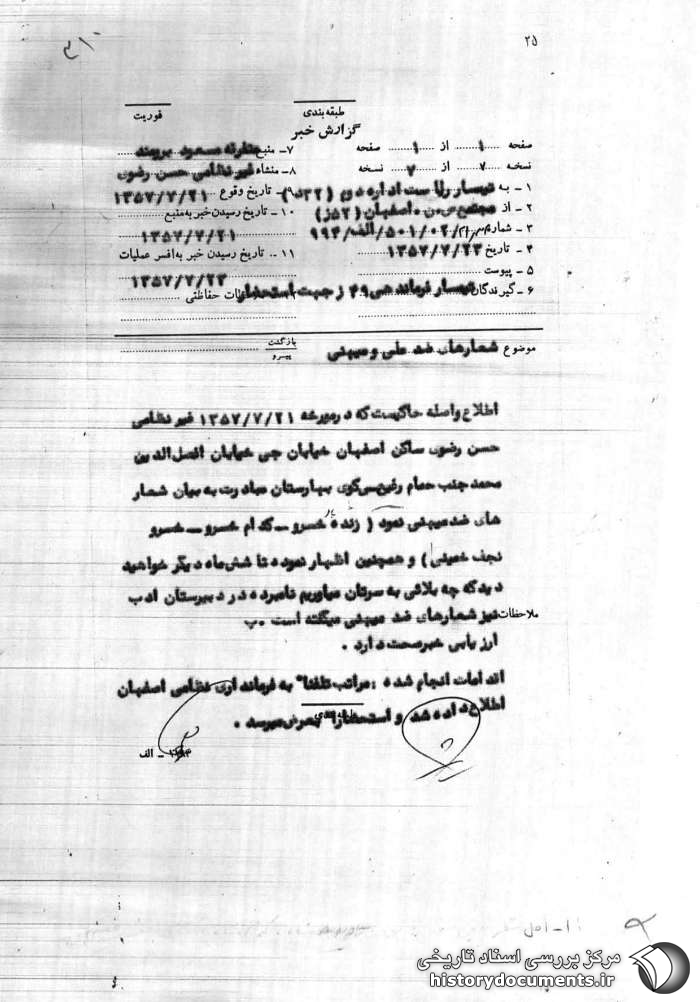 ۲۵
طبقه‌بندی
فوریت
گزارش خبر
صفحه ۱ از ۱ صفحه
نسخه ۷ از ۷ نسخه
۱ - به تیمسار ریاست اداره دوم (۳۲ د)
۲ - از مجتمع اصفهان (۵۲ ز)
۳ - شماره ۵۰۱/۰۲/الف/۹۹۴
۴ - تاریخ ۱۳۵۷/۷/۲۳
۵ - پیوست
۶ - گیرندگان تیمسار فرماندهی ۴۹ ز جهت استحضار
۷ - منبع متفرقه مسعود برومند
۸ - منشاء غیر نظامی حسن رضوی
۹ - تاریخ وقوع ۱۳۵۷/۷/۲۱
۱۰ - تاریخ رسیدن خبر به منبع
۱۳۵۷/۷/۲۱
۱۱ - تاریخ رسیدن خبر به افسر عملیات
۱۳۵۷/۷/۲۳
حفاظتی
موضوع شعارهای ضد ملی و میهنی
بازگشت
پیرو
اطلاع واصله حاکیست که در مورخه ۱۳۵۷/۷/۲۱ غیر نظامی
حسن رضوی ساکن اصفهان خیابان جی خیابان افضل الدین
محمد جنب حمام رفیع سی کوی بهارستان مبادرت به بیان شعار
های ضد میهنی نمود ( زنده باد خسرو – کدام خسرو – خسرو
نجف خمینی ) و همچنین اظهار نموده تا شش ماه دیگر خواهید
دید که چه بلائی به سرتان میاوریم نامبرده در دبیرستان ادب
ملاحظات نیز شعارهای ضد میهنی میگفته است .
ارزیابی خبر صحت دارد .
اقدامات انجام شده : مراتب تلفنا" به فرمانداری نظامی اصفهان
اطلاع داده شد و استحضارا" بعرض میرسد .
طبقه‌بندی
الف
مرکز بررسی اسناد تاریخی
historydocuments.ir